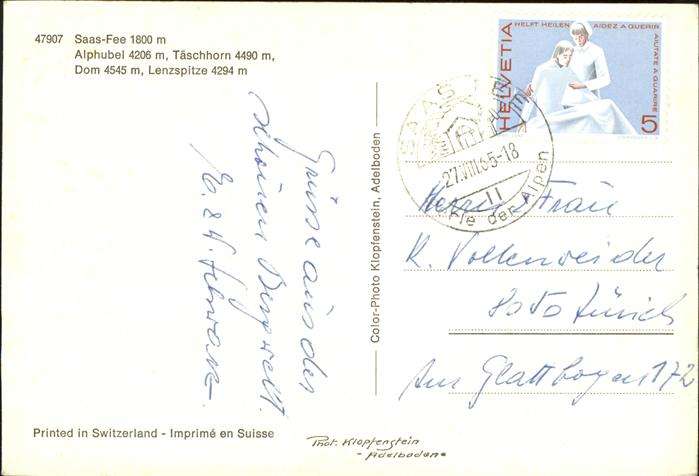 47907 Saas-Fee 1800 m
Alphubel 4206 m, Täschhorn 4490 m,
Dom 4545 m, Lenzspitze 4294 m
HELVETIA
HELFT HEILEN AIDEZ A GUERIR
AIUTATE A GUARIRE
5
SAAS-FEE
27.VIII.65-18
Perle der Alpen
Grüsse aus der
schönen Bergwelt.
E. & W. Schwarz
Herrn & Frau
K. Volkenweider
8050 Zürich
Am Glattbogen 172
Color-Photo Klopfenstein, Adelboden
Printed in Switzerland - Imprimé en Suisse
Phot. Klopfenstein
-Adelboden-